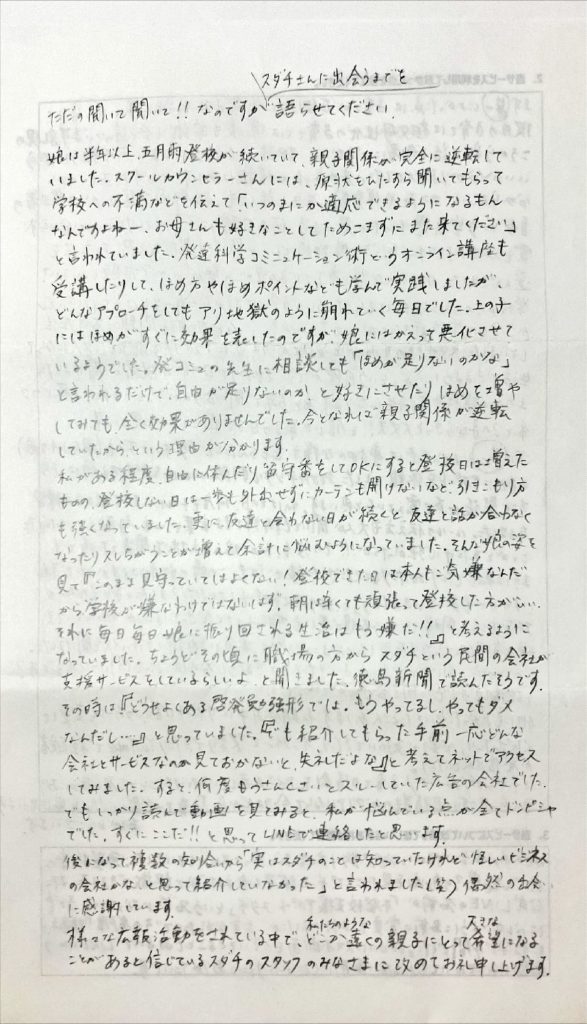 スダチさんに出会うまでを
ただの聞いて聞いて!! なのですが語らせてください.
娘は半年以上、五月雨登校が続いていて、親子関係が完全に逆転して
いました。スクールカウンセラーさんには、原状をひたすら聞いてもらって
学校への不満などを伝えて「いつのまにか適応できるようになるもん
なんですよねー、お母さんも好きなことしてためこまずにまた来てください」
と言われていました。発達科学コミュニケーション術というオンライン講座も
受講したりして、ほめ方やほめポイントなども学んで実践しましたが、
どんなアプローチをしてもアリ地獄のように崩れていく毎日でした。上の子
にはほめがすぐに効果を表したのですが、娘にはかえって悪化させて
いるようでした。発コミュの先生に相談しても「ほめが足りないのかな」
と言われるだけで、自由が足りないのか、と好きにさせたりほめを増や
してみても全く効果がありませんでした。今となれば親子関係が逆転
していたから、という理由が分かります.
私がある程度、自由に休んだり留守番をしてOKにすると登校日は増えた
ものの、登校しない日は一歩も外出せずにカーテンも開けないなど、引きこもり方
も強くなっていました。更に友達と会わない日が続くと友達と話が合わなく
なったりスレちがうことが増えて余計に悩むようになっていました。そんな娘の姿を
見て『このまま見守っていてはよくない!登校できた日は本人もご気嫌なんだ
から学校が嫌なわけではないはず。朝は辛くても頑張って登校した方がいい.
それに毎日毎日娘に振り回される生活はもう嫌だ!!』と考えるように
なっていました。ちょうどその頃に職場の方からスダチという民間の会社が
支援サービスをしているらしいよ、と聞きました。徳島新聞で読んだそうです.
その時は『どうせよくある啓発勉強形では。もうやってるし、やってもダメ
なんだし…』と思っていました。『でも紹介してもらった手前一応どんな
会社とサービスなのか見ておかないと失礼だよな』と考えてネットでアクセス
してみました。すると、何度もうさんくさいとスルーしていた広告の会社でした。
でもしっかり読んで動画を見てみると、私が悩んでいる点が全てドンピシャ
でした。すぐにここだ!!と思ってLINEで連絡したと思います.
後になって複数の知り合いから「実はスダチのことは知っていたけれど怪しいビジネス
の会社かな、と思って紹介していなかった」と言われました(笑) 偶然の出会い
に感謝しています.
私たちのような 大きな
様々な広報活動をされている中で、どこか遠くの親子にとって希望になる
ことがあると信じているスダチのスタッフのみなさまに改めてお礼申し上げます.